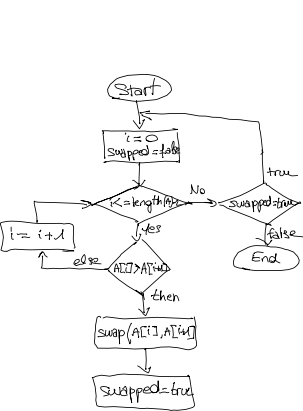 Start
i=0
swapped=false
true
i<=length(A)
No
swapped=true
yes
false
i=i+1
End
else
A[i]>A[i+1]
then
swap(A[i],A[i+1]
swapped=true